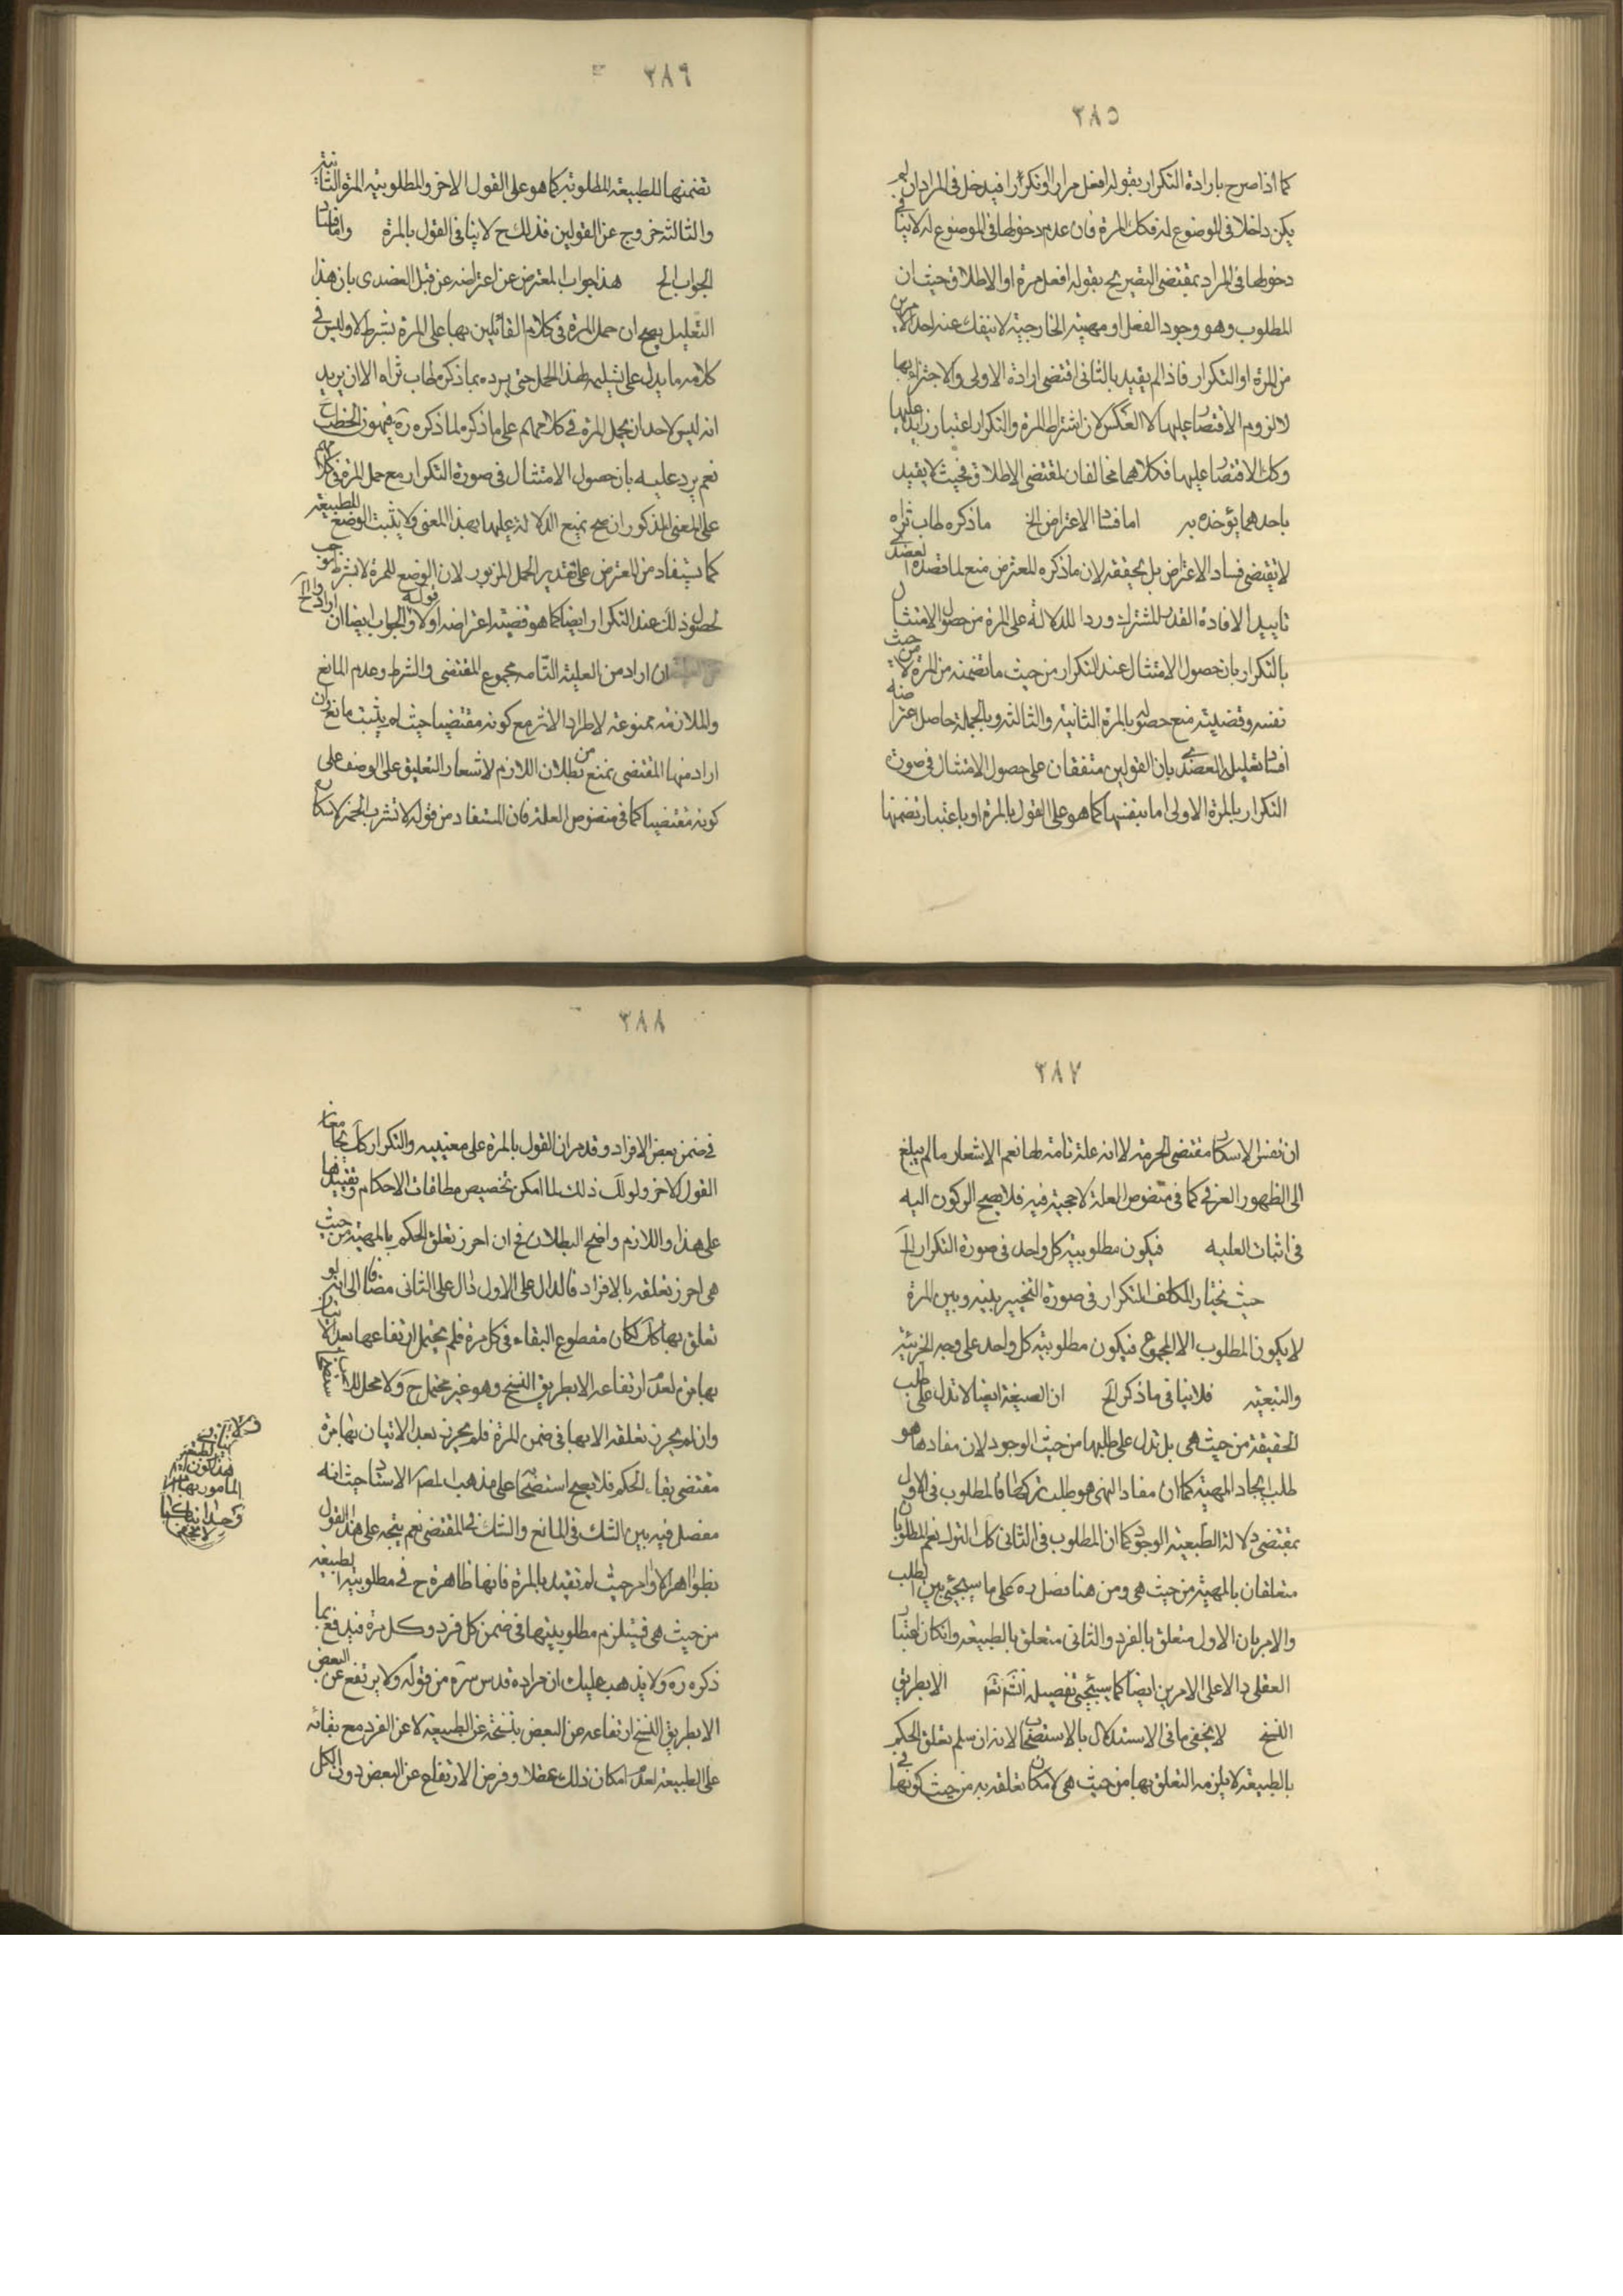 ٣٨٥
كما اذا صرح بارادة التكرار بقوله افعل مرارا او تكرارا فيدخل في المراد ان لم
يكن داخلا في الموضوع له فكك المرة فان عدم دخولها في الموضوع له لا ينافي
دخولها في المراد بمقتضى التصريح بقوله افعل مرة او الاطلاق حيث ان
المطلوب وهو وجود الفعل او مهيته الخارجية لا ينفك عنه احد الامرين
من المرة او التكرار فاذا لم يقيد بالثاني اقتضى ارادة الاولى والاجتزاء بها
لا لزوم الاقتصار عليها لا العكس لان اشتراط المرة والتكرار اعتبار زايد عليها
وكك الاقتصار عليها فكلاهما مخالفان لمقتضى الاطلاق فحيث لا يقيد
باحدهما يؤخذ به اما فساد الاعتراض الخ ما ذكره طاب ثراه
لا يقتضى فساد الاعتراض بل يحققه لان ما ذكره المعترض منع لما قصده العضدى
تاييدا لافادة القدر المشترك وردا للدلالة على المرة من حصول الامتثال
بالتكرار بان حصول الامتثال عند التكرار من حيث ما تضمنه من المرة لا من حيث
نفسه وقضيته منع حصوله بالمرة الثانية والثالثة وبالجملة حاصل اعتراضه
افساد تعليل العضدى بان القولين متفقان على حصول الامتثال في صورة
التكرار بالمرة الاولى اما بنفسها كما هو على القول بالمرة او باعتبار تضمنها
٣٨٦
تضمنها للطبيعة المطلوبة كما هو على القول الاخر والمطلوبية المرة الثانية
والثالثة خروج عن القولين فذلك ح لا ينافى القول بالمرة واما فساد
الجواب الخ هذا جواب المعترض عن اعتراضه عن قبل العضدى بان هذا
التعليل يصح ان حمل المرة في كلام القائلين بها على المرة بشرط لا وليس في
كلامه ما يدل على تسليمه لهذا الحمل حتى يرده بما ذكر طاب ثراه الا ان يريد
انه ليس لاحد ان يحمل المرة في كلامهم على ما ذكر لما ذكره ره فيهون الخطب ح
نعم يرد عليه بان حصول الامتثال في صورة التكرار مع حمل المرة في كلامهم
على المعنى المذكور ان صح يمنع الدلالة عليها بهذا المعنى ولا يثبت الوضع للطبيعة
كما يستفاد من المعترض على تقدير الحمل المزبور لان الوضع للمرة لا بشرط موجب
لحصول ذلك عند التكرار ايضا كما هو قضية اعتراضه اولا والجواب ايضا قوله ان اراد الخ
ان اراد من العلية التامة مجموع المقتضى والشرط وعدم المانع
والملازمة ممنوعة لاطراد الاثر مع كونه مقتضيا حيث لم يثبت مانع وان
اراد منها المقتضى يمنع من بطلان اللازم لاشعار التعليق على الوصف على
كونه مقتضيا كما في منصوص العلة فان المستفاد من قوله لا تشرب الخمر لاسكاره
٣٨٧
ان نفس الاسكار مقتضى الحرمة لا انه علة تامة لها نعم الاشعار ما لم يبلغ
الى الظهور العرفى كما في منصوص العلة لا حجية فيه فلا يصح الركون اليه
في اثبات العلية فيكون مطلوبية كل واحد في صورة التكرار الخ
حيث نختار المكلف التكرار في صورة التخيير بينه وبين المرة
لا يكون المطلوب الا المجموع فيكون مطلوبية كل واحد على وجه الجزئية
والتبعية فلا ينافى ما ذكر الخ ان الصيغة ايضا لا تدل على طلب
الحقيقة من حيث هى بل تدل على طلبها من حيث الوجود لان مفادها هو
طلب ايجاد المهية كما ان مفاد النهى هو طلب تركها فالمطلوب في الاول
بمقتضى دلالة الطبيعية الوجود كما ان المطلوب في الثانى كك الترك نعم المطلوبان
متعلقان بالمهية من حيث هى ومن هنا فصل ره على ما سيجئ بين الطلب
والامر بان الاول متعلق بالفرد والثانى متعلق بالطبيعة وان كان اعتبار
العقلى دالا على الامرين ايضا كما سيجئ تفصيله انشاء الله تعالى الا بطريق
النسخ لا يخفى ما في الاستدلال بالاستصحاب لانه ان سلم تعلق الحكم
بالطبيعة لا يلزمه التعلق بها من حيث هى لامكان تعلقه به من حيث كونها في
٣٨٨
في ضمن بعض الافراد وقد مر ان القول بالمرة على معنييه والتكرار كك يجامعان
القول الاخر ولولا ذلك لما امكن تخصيص مطلقات الاحكام وتقييدها
على هذا واللازم واضح البطلان فح ان احرز تعلق الحكم بالمهية من حيث
هى احرز تعلقه بالافراد فالدال على الاول دال على الثانى مضافا الى انه لو
تعلق بها كك لكان مقطوع البقاء في كل مرة فلم يحتمل ارتفاعها بعد الاتيان
بها مرة لعدم ارتفاعه الا بطريق النسخ وهو غير محتمل ح ولا محل للاستصحاب
وان لم يحرز تعلقه الا بها في ضمن المرة فلم يحرز بعد الاتيان بها مرة
مقتضى بقاء الحكم فلا يصح استصحابا على مذهب المصر الاستاد حيث انه
مفصل فيه بين الشك في المانع والشك في المقتضى نعم يتجه على هذا القول
بظواهر الاوامر حيث لم تقيد بالمرة فانها ظاهرة ح في مطلوبية الطبيعة
من حيث هى فيستلزم مطلوبيتها في ضمن كل فرد وكل مرة فيدفع بما
ذكره ره ولا يذهب عليك ان مراده قدس سره من قوله ولا يرتفع عن البعض
الا بطريق النسخ ارتفاعه عن البعض بنسخه عن الطبيعة لا عن الفرد مع بقائه
على الطبيعة لعدم امكان ذلك عقلا وفرض الارتفاع عن البعض دون الكل
ولا ينافى
هذا كون
المامور بها
لا يخفى